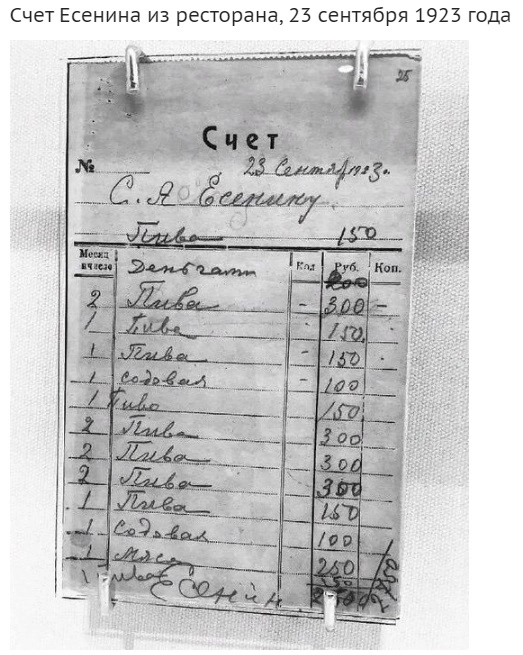 Счет Есенина из ресторана, 23 сентября 1923 года
25
Счет
№ 23 Сентяр
С. А Есенину
Пива 150
Месяц и число Деньгами Кол Руб. Коп.
2 Пива - 300 -
1 Пива - 150.
1 Пива - 150
1 содовая - 100
1 Пиво 150
2 Пива 300
2 Пива 300
2 Пива 300
1 Пива 150
1 Содовая 100
1 мясо 250
1 Есенин